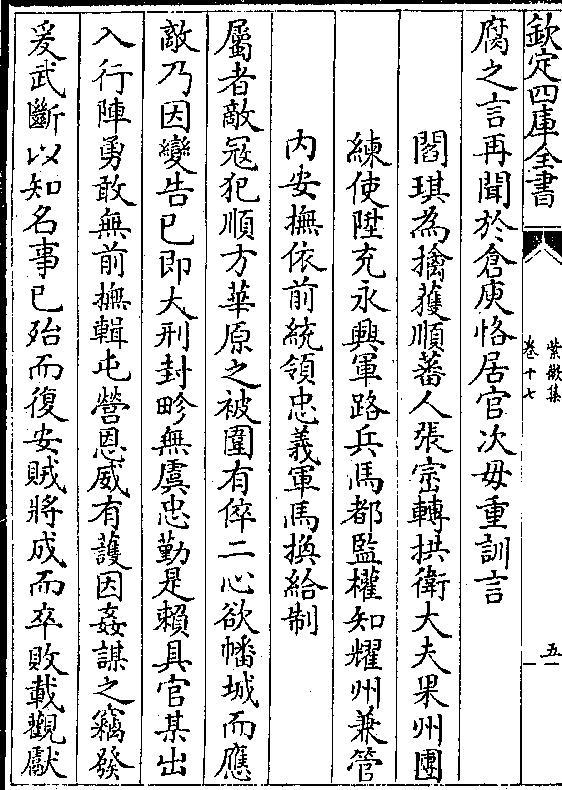 欽定四庫全書
紫微集
卷十七
五
腐之言再聞於倉庾恪居官次毋重訓言
閻琪為擒獲順蕃人張宗轉拱衛大夫果州團
練使陞充永興軍路兵馬都監權知耀州兼管
内安撫依前統領忠義軍馬換給制
屬者敵冦犯順方華原之被圍有倅二心欲幡城而應
敵乃因變告已即大刑封畛無虞忠勤是賴具官某出
入行陣勇敢無前撫輯屯營恩威有䕶因姦謀之竊發
爰武斷以知名事已殆而復安賊將成而卒敗載觀獻